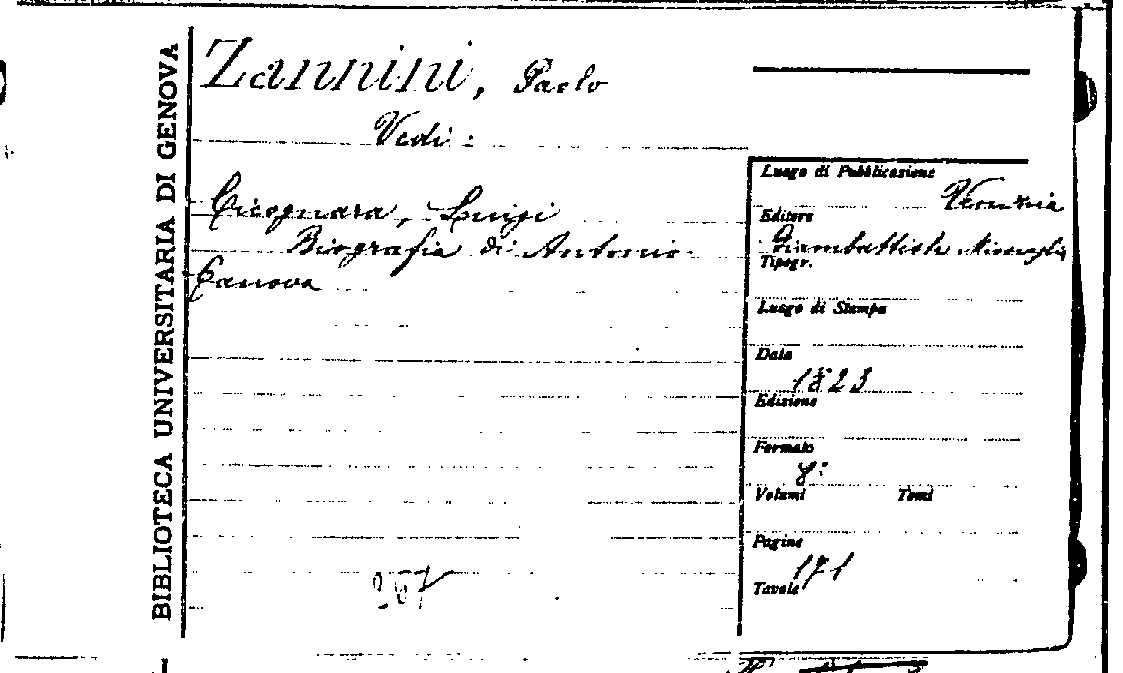 BIBLIOTECA UNIVERSITARIA DI GENOVA
Zannini, Paolo
Vedi:
Cicognara, Luigi
Biografia di Antonio
Canova
267
Luogo di Pubblicazione
Venezia
Editore
Giambattista Missaglia
Tipogr.
Luogo di Stampa
Data
1823
Edizione
Formato
8:
Volumi Tomi
Pagine
171
Tavole